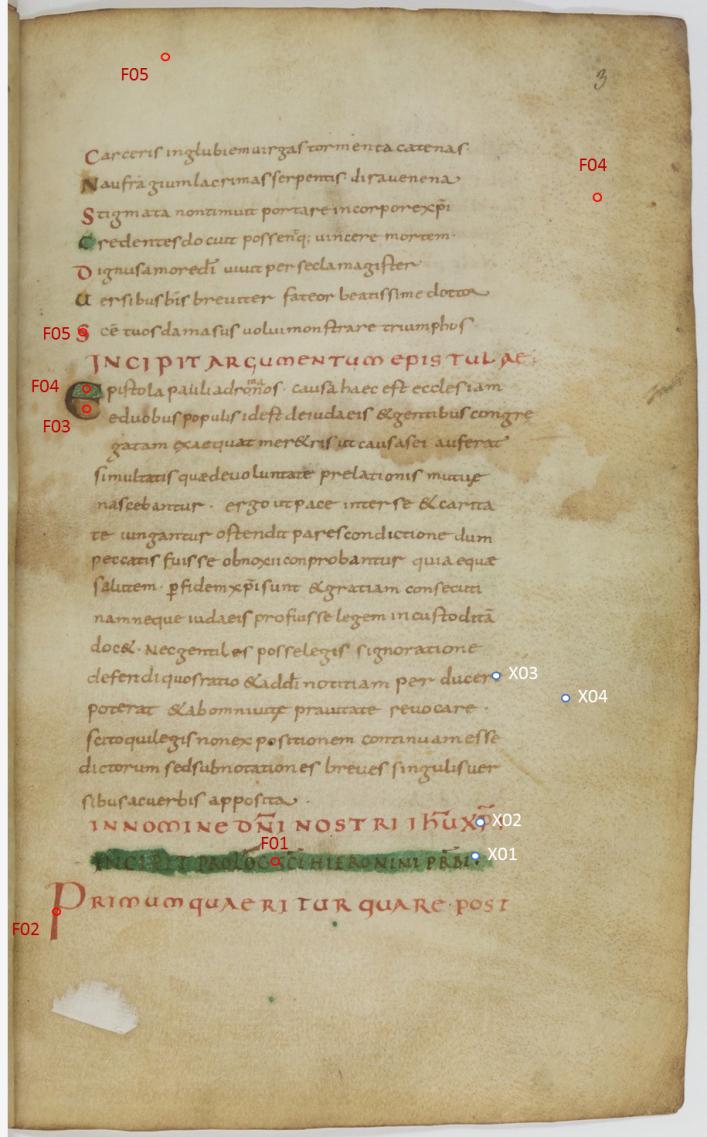 3
Carceris inglubiem uirgas tormenta catenas
Naufragium lacrimas serpentis dira uenena
Stigmata non timuit portare in corpore xp̄i
Credentes docuit possent q; uincere mortem
Dignus amore dī uiuit per secla magister
Uersibus bis breuiter fateor beatissime doctor
Scē tuos damasus uolui monstrare triumphos
INCIPIT ARGUMENTUM EPISTULAE
Epistola pauli ad romanos causa haec est ecclesiam
e duobus populis id est de iudaeis & gentibus congre
gatam exaequat mer&ris ut causas ei auferat
simultatis quae de uoluntate prelationis mutuę
nascebantur. ergo ut pace inter se & carita
te iungantur ostendit pares condictione dum
peccatis fuisse obnoxii conprobantur quia eque
salutem p fidem xp̄i sunt & gratiam consecuti
nam neque iudaeis profuisse legem in custoditā
doc&. Nec gentiles posse legis signoratione
defendi quos ratio & ad dī notitiam per ducer
poterat & ab omni uitę prauitate reuocare.
scito qui legis non expositionem continuam esse
dictorum sed subnotationes breues singulis uer
sibus ac uerbis apposita.
IN NOMINE DN̄I NOSTRI IHŪ XP̄I
INCIPIT PROLOG SCI HIERONIMI PRBI
PRIMUM QUAERITUR QUARE POST
F05
F04
F05
F04
F03
X03
X04
X02
F01
X01
F02